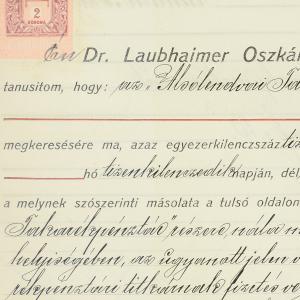 2
KORONA
Én Dr. Laubhaimer Oszká
tanusitom, hogy: az „Alsólendvai Ta
megkeresésére ma, azaz egyezerkilenczszáz tiz
hó tizenkilenczedik napján, dél
a melynek szószerinti másolata a tulsó oldalon
Takarékpénztár" részére, nála m
helyiségében, az ugyanott jelen v
rékpénztári titkárnak fizetés v